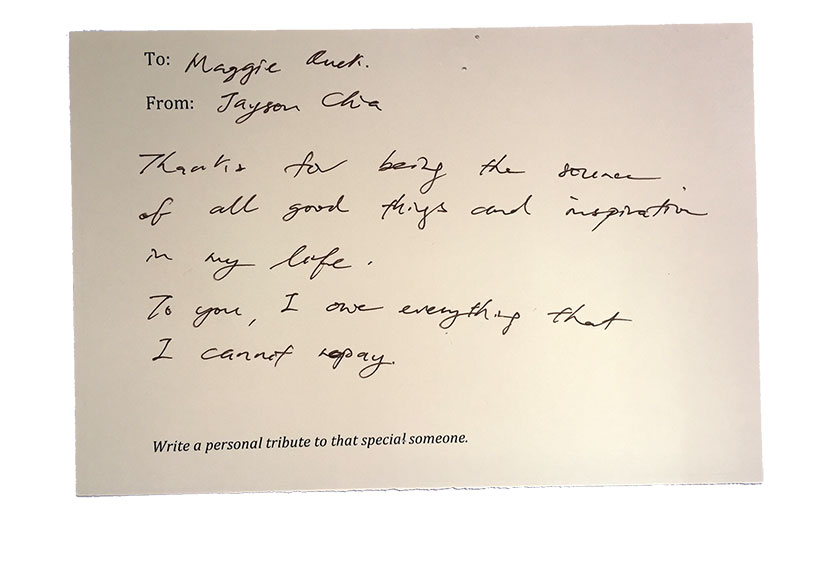 To: Maggie Quek.
From: Jayson Chia
Thanks for being the source
of all good things and inspiration
in my life.
To you, I owe everything that
I cannot repay.
Write a personal tribute to that special someone.